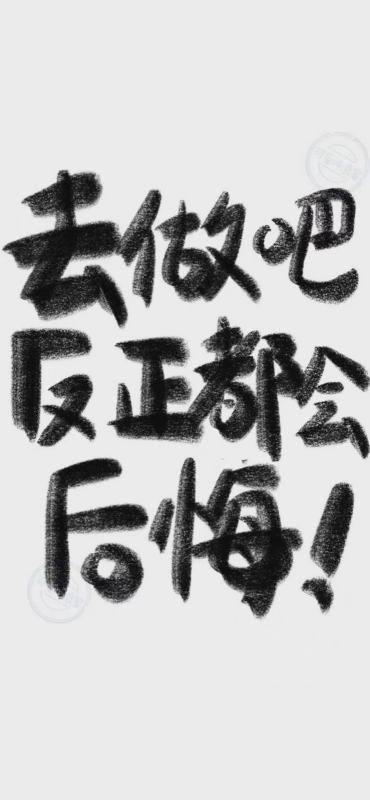 去做吧
反正都会
后悔！